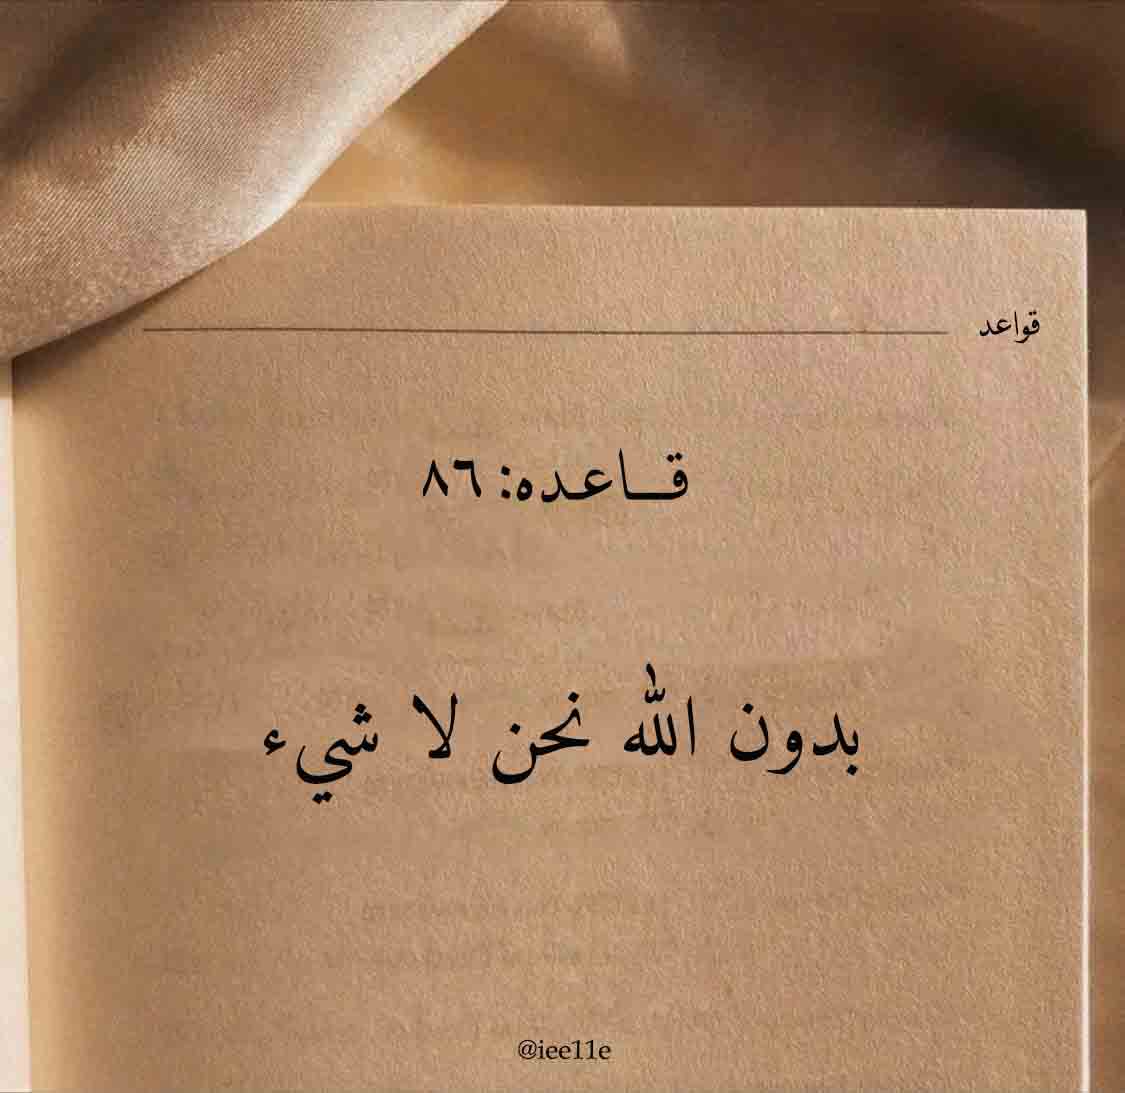 قواعد
قـاعده: ٨٦
بدون الله نحن لا شيء
@iee11e